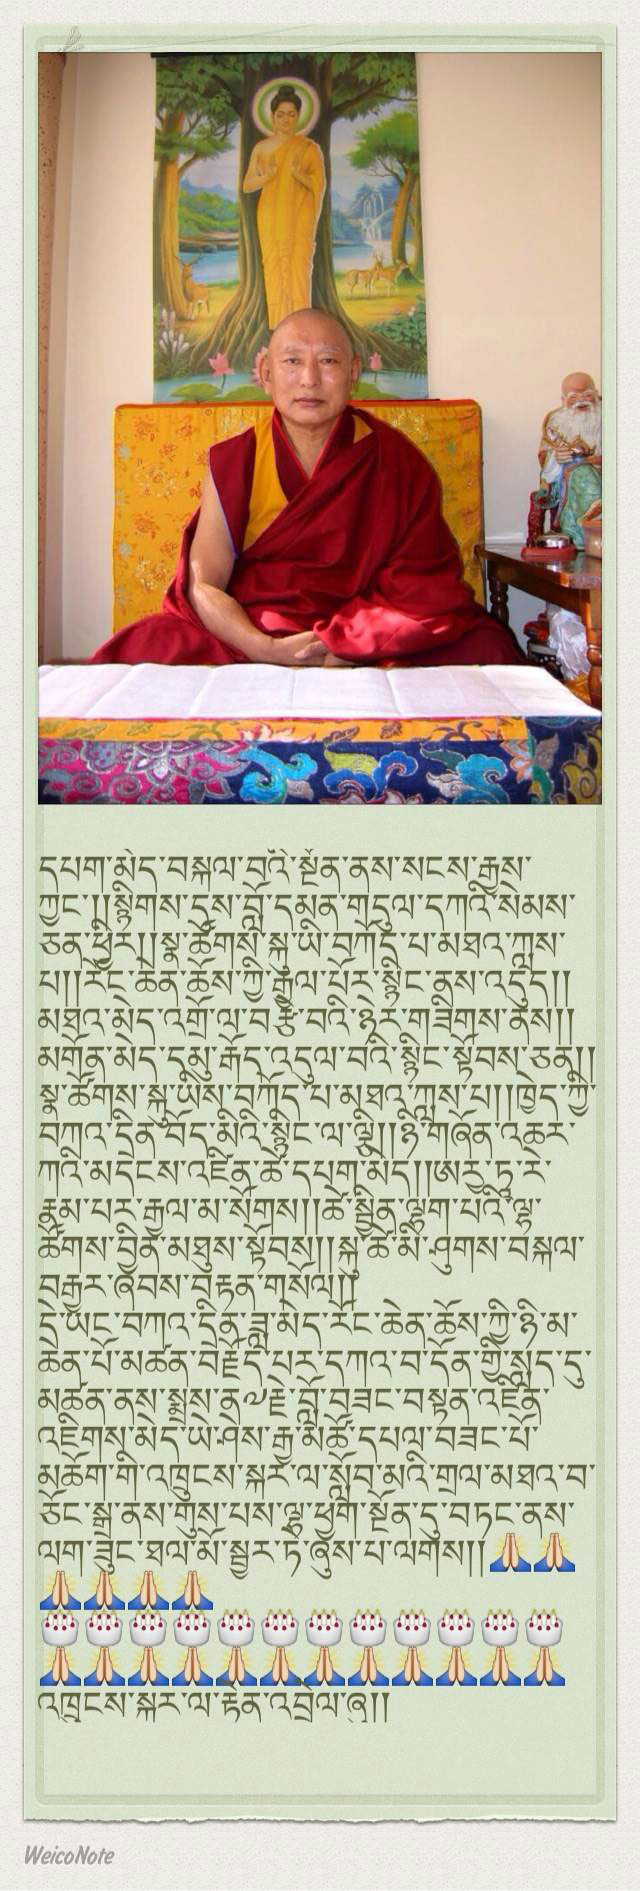 དཔག་མེད་བསྐལ་བའི་སྔོན་ནས་སངས་རྒྱས་
ཀྱང་།།སྙིགས་དུས་བློ་དམན་གདུལ་དཀའི་སེམས་
ཅན་ཕྱིར།།སྣ་ཚོགས་སྐུ་ཡི་བཀོད་པ་མཐའ་ཀླས་
པ།།རོང་ཆེན་ཆོས་ཀྱི་རྒྱལ་པོར་སྙིང་ནས་འདུད།།
མཐའ་མེད་འགྲོ་ལ་བརྩེ་བའི་ཉེར་གཟིགས་ནས།།
མགོན་མེད་དམུ་རྒོད་འདུལ་བའི་སྙིང་སྟོབས་ཅན།།
སྣ་ཚོགས་སྐུ་ཡིས་བཀོད་པ་མཐའ་ཀླས་པ།།ཁྱེད་ཀྱི་
བཀའ་དྲིན་བོད་མིའི་སྙིང་ལ་ལྷི།།ཉི་གཞོན་འཆར་
ཀའི་མདངས་འཛིན་ཚེ་དཔག་མེད།།ཨརྱ་ཏཱ་རེ་
རྣམ་པར་རྒྱལ་མ་སོགས།།ཚེ་སྦྱིན་ལྷག་པའི་ལྷ་
ཚོགས་བྱིན་མཐུས་སྟོབས།།སྐུ་ཚེ་མི་ཤུགས་བསྐལ་
བརྒྱར་ཞབས་བརྟན་གསོལ།།
དེ་ཡང་བཀའ་དྲིན་ཟླ་མེད་རོང་ཆེན་ཆོས་ཀྱི་ཉི་མ་
ཆེན་པོ་མཚན་བརྗོད་པར་དཀའ་བ་དོན་གྱི་སླད་དུ་
མཚན་ནས་སྨྲོས་ན༧རྗེ་བློ་བཟང་བསྟན་འཛིན་
འཇིགས་མེད་ཡེ་ཤེས་རྒྱ་མཚོ་དཔལ་བཟང་པོ་
མཆོག་གི་འཁྲུངས་སྐར་ལ་སློབ་མའི་གྲལ་མཐའ་བ་
ཅོང་སྒྲ་ནས་གུས་པས་ལྷ་ཕྱག་སྔོན་དུ་བཏང་ནས་
ལག་ཟུང་ཐལ་མོ་སྦྱར་ཏེ་ཞུས་པ་ལགས།།🙏🙏
🙏🙏🙏🙏
🎂🎂🎂🎂🎂🎂🎂🎂🎂🎂🎂🎂
🙏🙏🙏🙏🙏🙏🙏🙏🙏🙏🙏🙏
འཁྲུངས་སྐར་ལ་རྟེན་འབྲེལ་ཞུ།།
WeicoNote